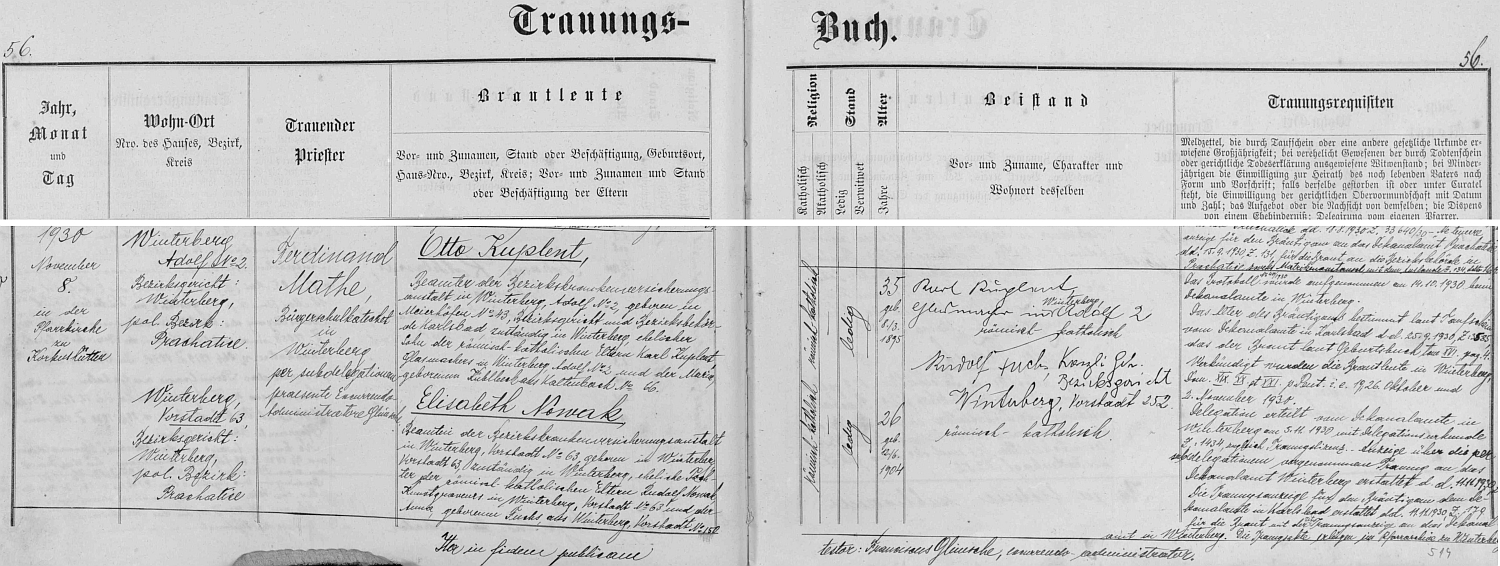 Trauungs-
Buch.
56.
56.
Jahr,
Monat
und
Tag
Wohn-Ort
Nro. des Hauses, Bezirk,
Kreis
Trauender
Priester
Brautleute
Vor- und Zunamen, Stand oder Beschäftigung, Geburtsort,
Haus-Nro., Bezirk, Kreis; Vor- und Zunamen und Stand
oder Beschäftigung der Eltern
Religion
Katholisch
Akatholisch
Stand
Ledig
Verwitwet
Alter
Jahre
Beistand
Vor- und Zuname, Charakter und
Wohnort desselben
Trauungsrequisiten
Meldzettel, die durch Taufschein oder eine andere gesetzliche Urkunde er-
wiesene Großjährigkeit; bei verehelicht Gewesenen der durch Todtenschein
oder gerichtliche Todeserklärung ausgewiesene Witwenstand; bei Minder-
jährigen die Einwilligung zur Heirath des noch lebenden Vaters nach
Form und Vorschrift; falls derselbe gestorben ist oder unter Curatel
steht, die Einwilligung der gerichtlichen Obervormundschaft mit Datum
und Zahl; das Aufgebot oder die Nachsicht von demselben; die Dispens
von einem Ehehindernis; Delegirung vom eigenen Pfarrer.
1930
November
8.
in der
Pfarrkirche
zu
Winterberg
Adolf No 2.
Bezirksgericht:
Winterberg,
pol. Bezirk:
Prachatice.
Winterberg,
Vorstadt 63
Bezirksgericht:
Winterberg,
pol. Bezirk:
Prachatice
Ferdinand
Mathe,
Bürgerschulkatechet
in
Winterberg
per subdelegationem
praesente Excurrendo-
Administratore
Otto Kuplent,
Beamter der Bezirkskrankenversicherungs-
anstalt in Winterberg, Adolf No 2, geboren in
Meierhöfen No 43, Bezirksgericht und Bezirksbehör-
de Karlsbad zuständig in Winterberg, ehelicher
Sohn der römisch-katholischen Eltern Karl Kuplent,
Glasmachers in Winterberg Adolf No 2 und der Maria,
geborenen aus Kaltenbach No 66.
Elisabeth Nowak,
Beamtin der Bezirkskrankenversicherungsanstalt
in Winterberg, Vorstadt No 63, geboren in Winterberg,
Vorstadt 63 zuständig in Winterberg, eheliche Toch-
ter der römisch katholischen Eltern Rudolf Nowak,
Kunstgraveurs in Winterberg, Vorstadt No 63 und der
Anna geborenen Fuchs aus Winterberg, Vorstadt No 150
römisch katholisch
ledig
35
geb.
8/3.
1895
römisch-katholisch
ledig
26
geb.
1904
Karl Kuplent,
Winterberg,
Adolf 2
römisch katholisch
Rudolf Fuchs,
Bezirksgericht
Winterberg, Vorstadt 252.
römisch-katholisch.
Das Protokoll wurde aufgenommen am 14.10.1930 beim
Dekanalamte in Winterberg.
Das Alter des Bräutigams bestimmt laut Taufschein
vom Dekanalamte in Karlsbad d. d. 25.9.1930,
das der Braut laut Geburtsbuch Tom XVI. pag. 4.
Verkündigt wurden die Brautleute in Winterberg,
Dom. XIX. XX et XXI. p. Pent. i. e. 19, 26 Oktober und
2. November 1930.
Delegation erteilt vom Dekanalamte in
Winterberg am 5.11.1930 mit Delegationsurkunde
Z. 1434
Dekanalamt Winterberg erstattet d. d. 11.11.1930
Die Trauungsanzeige für den Bräutigam dem De-
kanalamte in Karlsbad erstattet dd. 11.11.1930 Z. 179
für die Braut mit der Trauungsanzeige an das Dekanal-
amt in Winterberg.
Iter in fidem publicam
testor: Franciscus Glinsche, excurrendo-administrator.
514